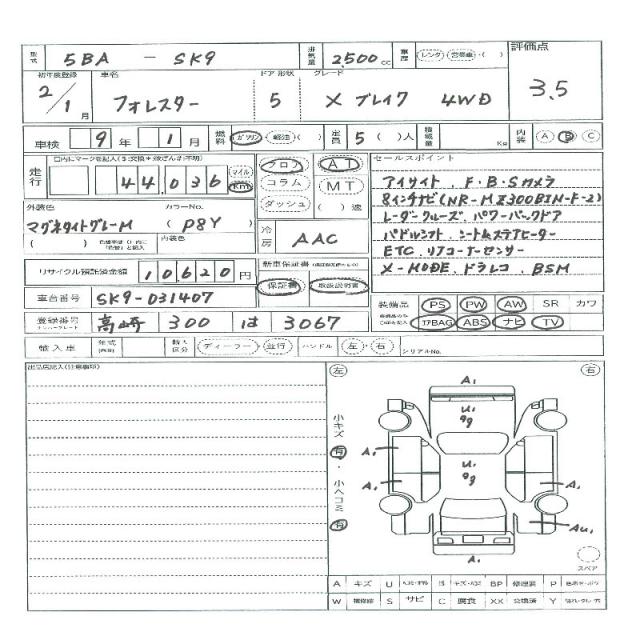 型式 5BA - SK9 排気量 2,500 cc 車歴 レンタ・営業車・( ) 評価点
3.5
初年度登録 車名 ドア 形状 グレード
2/1月 フォレスター 5 X ブレイク 4WD
車検 9年 1月 燃料 ガソリン・軽油・( ) 定員 5( )人 積載量 Kg 内装 A B C
走行 44,036 マイル Km
フロア コラム ダッシュ
AT MT ( )速
セールスポイント
アイサイト、F・B・Sカメラ
8インチナビ(NR-MZ300BIN-F-2)
レーダークルーズ、パワーバックドア
パドルシフト、シートムステアヒーター
ETC、リアコーナーセンサー
X-MODE、ドラレコ、BSM
外装色 カラーNo.
マグネタイトグレーM ( P8Y )
内装色
冷房 AAC
リサイクル預託済金額 10,620円
新車保証書
保証書 取扱説明書
車台番号 SK9-031407
装備品 PS PW AW SR カワ
エアBAG ABS ナビ TV
登録番号 ナンバープレート 高崎 300 は 3067
輸入車 年式 輸入区分 ディーラー・並行 ハンドル 左・右 シリアルNo.
出品店記入(注意事項)
左 右
小キズ 有・小ヘコミ 有
A1
U1
A1
U1
A1
A1
A1
AU1
スペア
A キズ U B BP 修理跡 P
W S サビ C 腐食 XX 交換済 Y